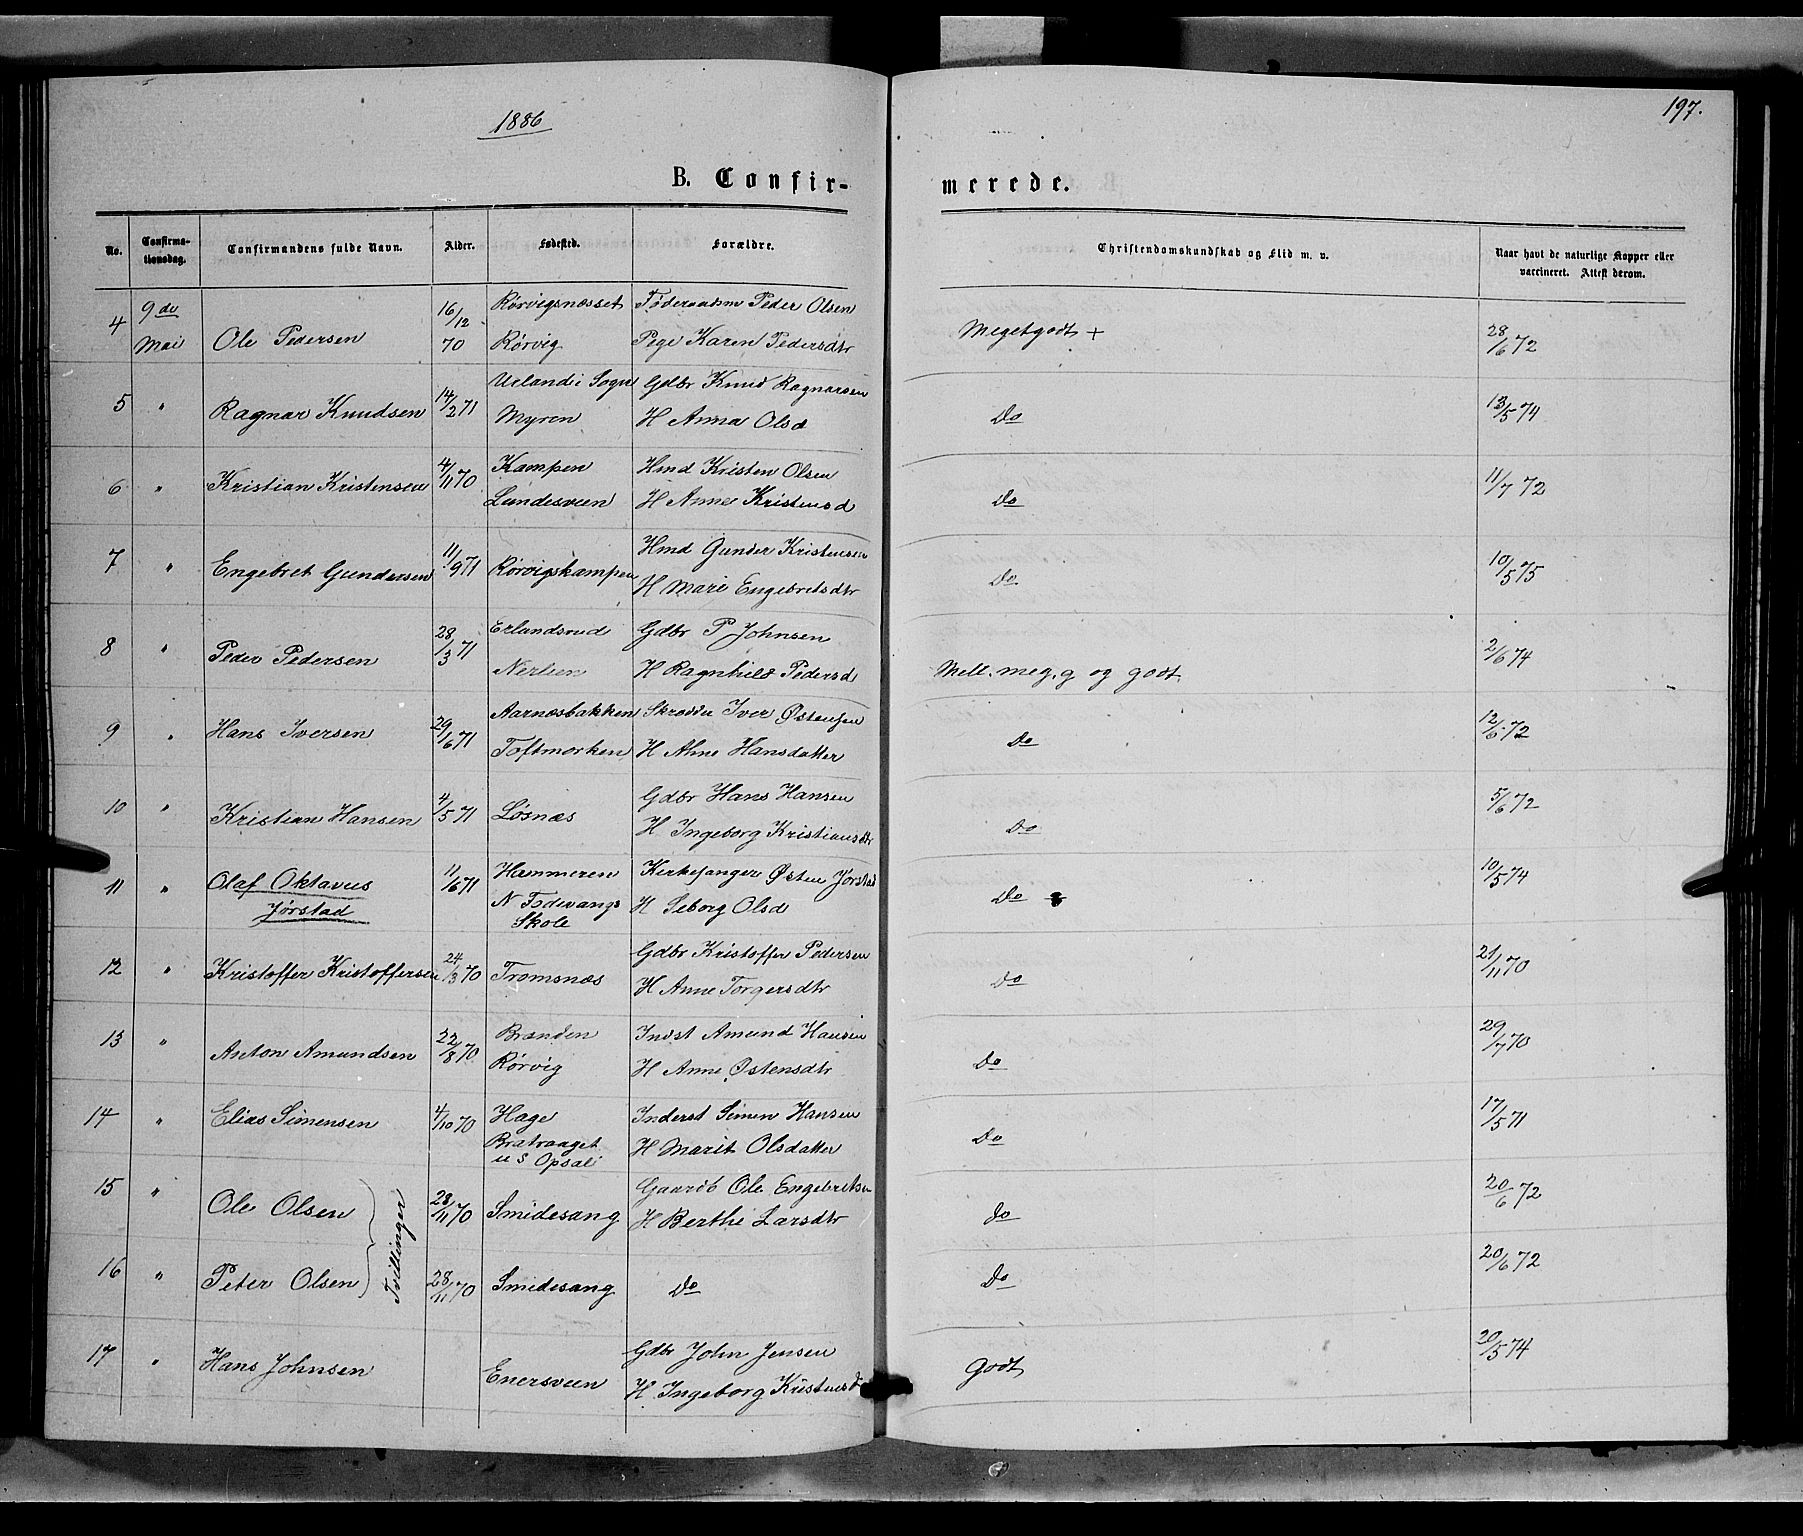 1886
197.
B. Confir-
merede.
No.
Confirma-
tionsdag.
Confirmandens fulde Navn.
Alder.
Fødested.
Forældre.
Christendomskundskab og Flid m. v.
Naar havt de naturlige Kopper eller
vaccineret. Attest derom.
4 9de Mai Ole Pedersen 16/12 70 Rørvigsnæsset Rørvig Føderaadsm Peder Olsen Pige Karen Pedersdtr Megetgodt + 28/6 72
5 " Ragnar Knudsen 14/2 71 Urland i Sogn Myren Gdbr Knud Ragnarsen H Anna Olsd Do 13/5 74
6 " Kristian Kristensen 4/11 70 Kampen Lundesveen Hmd Kristen Olsen H Anne Kristensd Do 11/7 72
7 " Engebret Gundersen 11/9 71 Rørvigskampen Hmd Gunder Kristensen H Mari Engebretsdtr Do 10/5 75
8 " Peder Pedersen 28/3 71 Erlandsrud Nerlien Gdbr P Johnsen H Ragnhild Pedersd Mell. meg. g og godt. 2/6 74
9 " Hans Iversen 29/6 71 Aarnæsbakken Toftmorken Skrædder Iver Østensen H Ahne Hansdatter Do 12/6 72
10 " Kristian Hansen 4/5 71 Løsnæs Gdbr Hans Hansen H Ingeborg Kristiansdtr Do 5/6 72
11 " Olaf Oktavus Jørstad 11/6 71 Hammeren N Fodevangs Skole Kirkesanger Østen Jørstad H Seborg Olsd Do 10/5 74
12 " Kristoffer Kristoffersen 24/3 70 Tromsnæs Gdbr Kristoffer Pedersen H Anne Torgersdtr Do 21/11 70
13 " Anton Amundsen 22/8 70 Brænden Rørvig Indst Amund Hansen H Anne Østensdtr Do 29/7 70
14 " Elias Simensen 4/10 70 Hage Bratvaaget u S Opsal Inderst Simen Hansen H Marit Olsdatter Do 17/5 71
15 " Ole Olsen 28/11 70 Smidesang Gaardb Ole Engebretsen H Berthe Larsdtr Do 20/6 72
Tvillinger
16 " Peter Olsen 28/11 70 Smidesang Do Do 20/6 72
17 " Hans Johnsen Enersveen Gdbr John Jensen H. Ingeborg Kristensd Godt 20/5 74